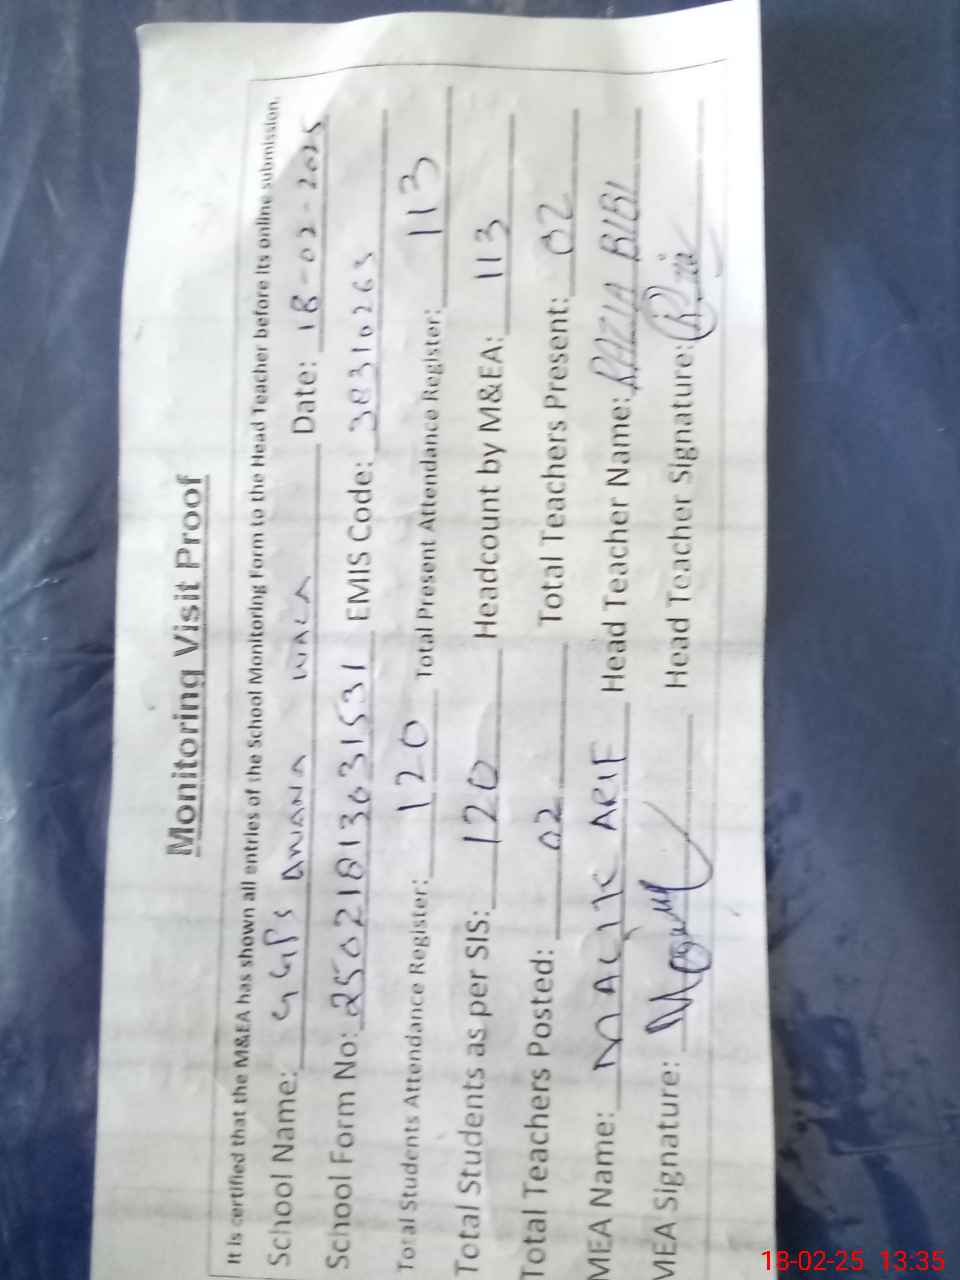 Monitoring Visit Proof
It is certified that the M&EA has shown all entries of the School Monitoring Form to the Head Teacher before its online submission.
School Name: GGPS AWANA WALA Date: 18-02-2025
School Form No: 25021813631531 EMIS Code: 38310263
Total Students Attendance Register: 120 Total Present Attendance Register: 113
Total Students as per SIS: 120 Headcount by M&EA: 113
Total Teachers Posted: 02 Total Teachers Present: 02
MEA Name: MALIK ARIF Head Teacher Name: RAZIA BIBI
MEA Signature: Head Teacher Signature:
18-02-25 13:35